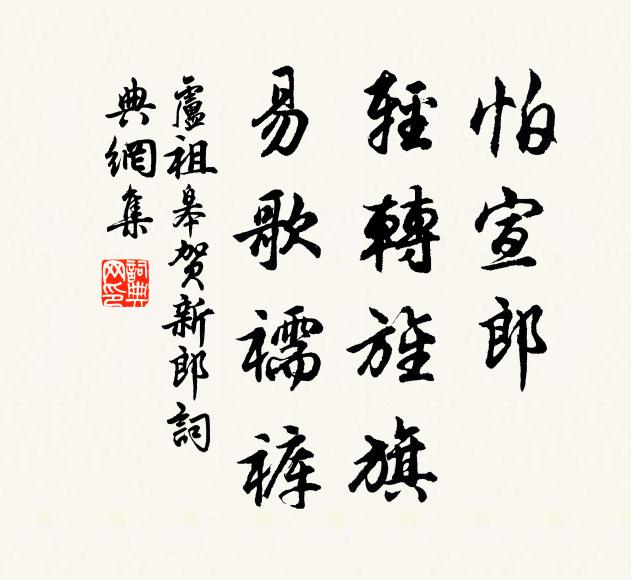 怕宣郎
輕轉旌旗
易歌襦褲
盧祖皋賀新郎詞
典網集
詞典網印